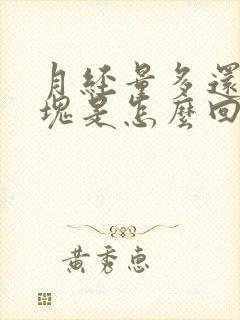 月經量多還
塊是怎麼回
黃秀惠